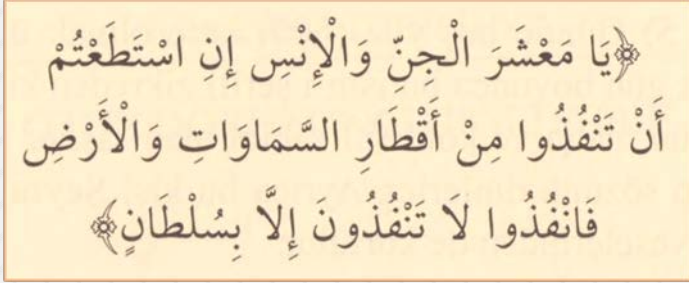 ﴿يَا مَعْشَرَ الْجِنِّ وَالْإِنْسِ إِنِ اسْتَطَعْتُمْ
أَنْ تَنْفُذُوا مِنْ أَقْطَارِ السَّمَاوَاتِ وَالْأَرْضِ
فَانْفُذُوا لَا تَنْفُذُونَ إِلَّا بِسُلْطَانٍ﴾